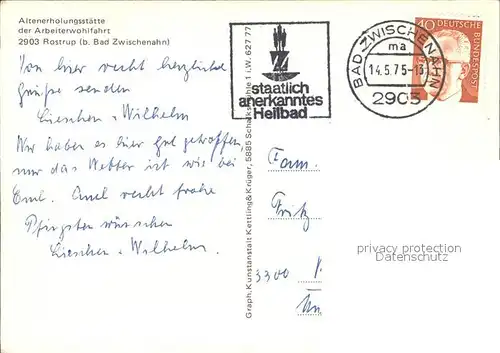 Altenerholungsstätte
der Arbeiterwohlfahrt
2903 Rostrup (b. Bad Zwischenahn)
Von hier recht herzliche
Grüße senden
Lieschen u. Wilhelm
Wir haben es hier gut getroffen
nur das Wetter ist wie bei
Euch. Auch recht frohe
Pfingsten wünschen
Lieschen u. Wilhelm.
Graph. Kunstanstalt Kettling & Krüger, 5885 Schalksmühle 1 i.W. 627 77
staatlich
anerkanntes
Heilbad
BAD ZWISCHENAHN
ma
14.5.75-13
2903
40 DEUTSCHE
BUNDESPOST
Fam.
Fritz
3300
privacy protection
Datenschutz